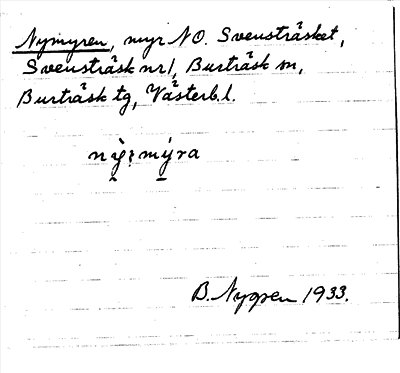 Nymyren, myr NO. Svensträsket,
Svensträsk nr 1, Burträsk sn,
Burträsk tg, Västerb. l.
B. Nygren 1933.